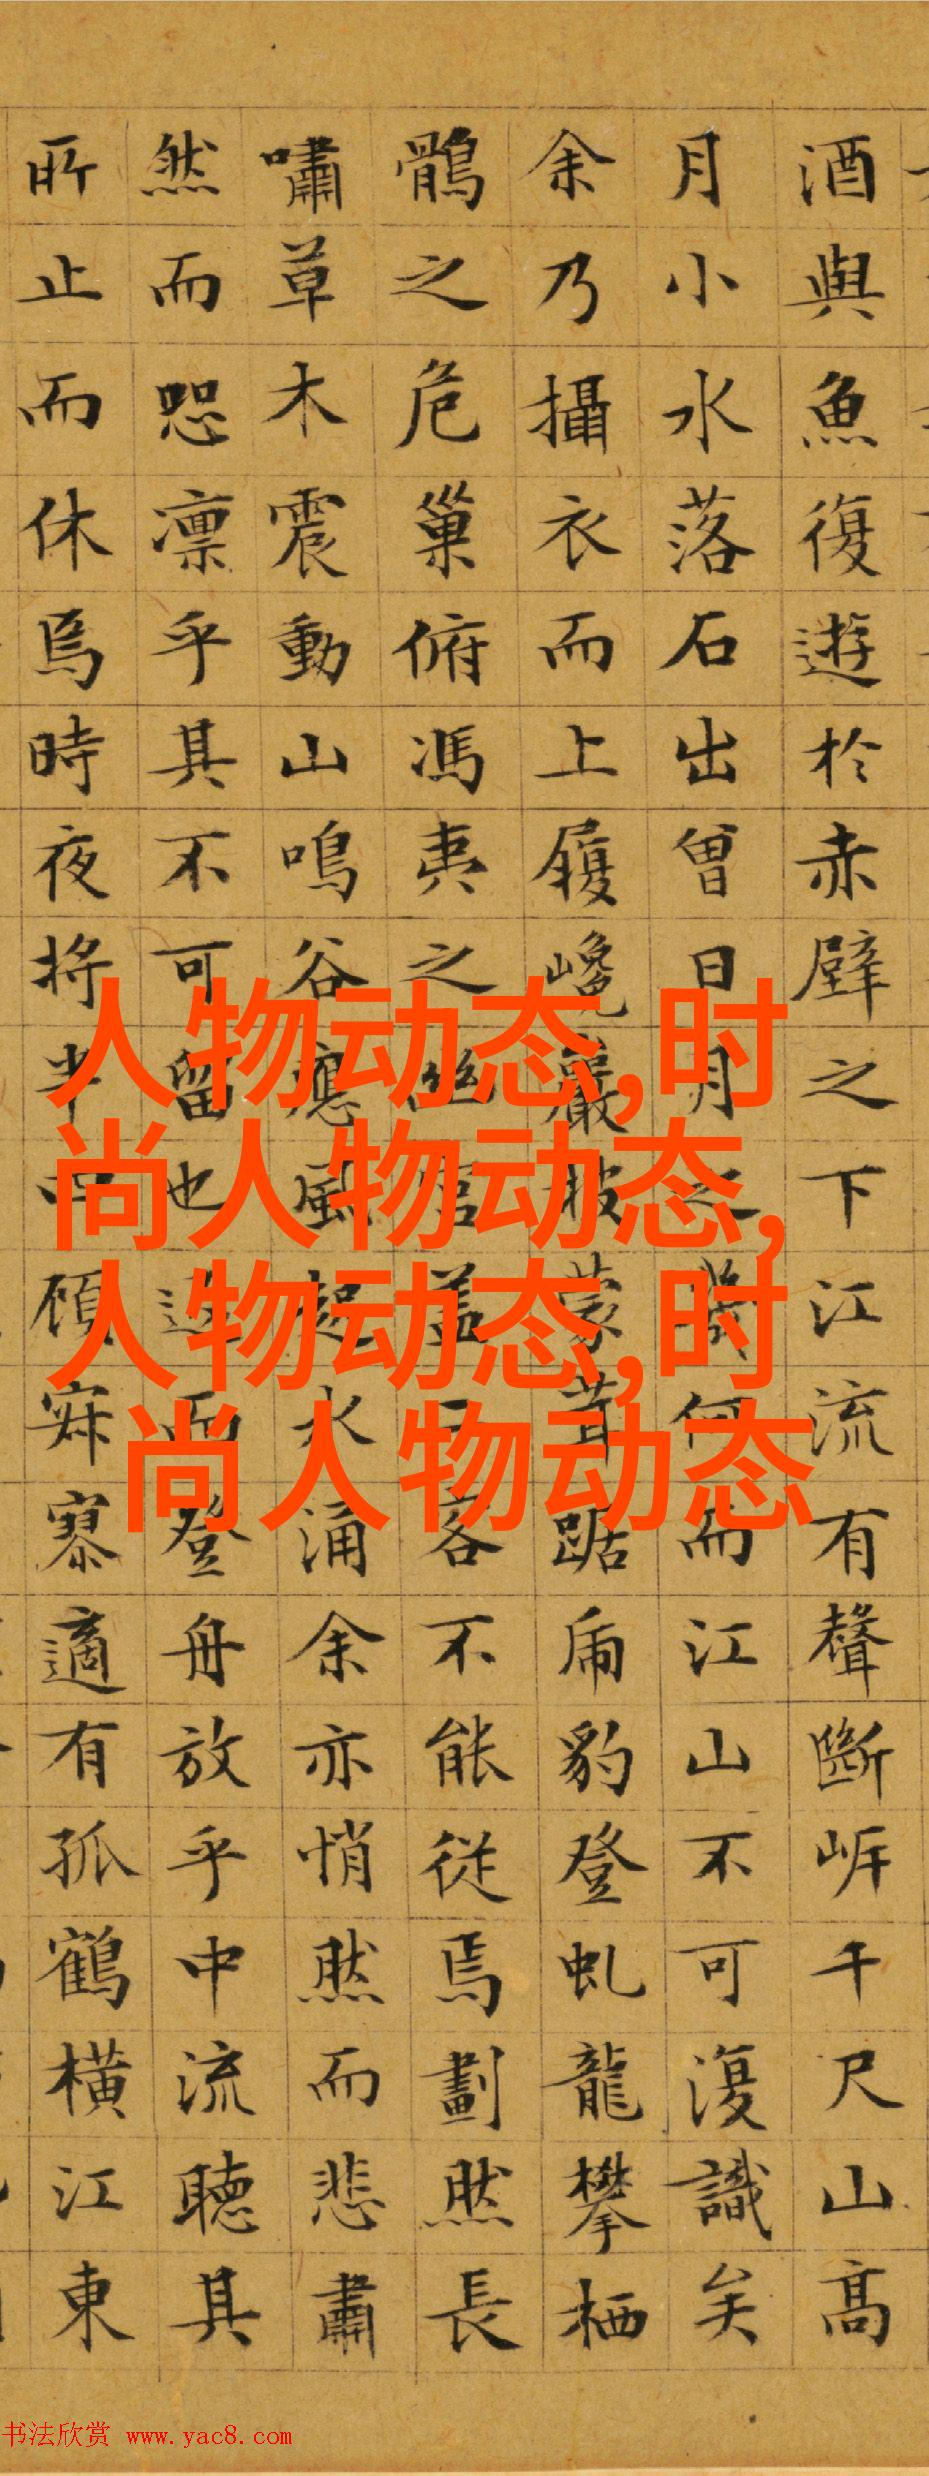 酒與魚復遊於赤壁之下江流有聲斷岸千尺山高
月小水落石出曾日月之幾何而江山不可復識矣
余乃攝衣而上履巉巖披蒙茸踞虎豹登虬龍攀栖
鶻之危巢俯馮夷之幽宮盖二客不能從焉劃然長
嘯草木震動山鳴谷應風起水涌余亦悄然而悲肅
然而恐凛乎其不可留也返而登舟放乎中流聽其
所止而休焉時夜將半四顧寂寥適有孤鶴橫江東
人物动态,时
尚人物动态,
人物动态,时
尚人物动态
书法欣赏 www.yac8.com